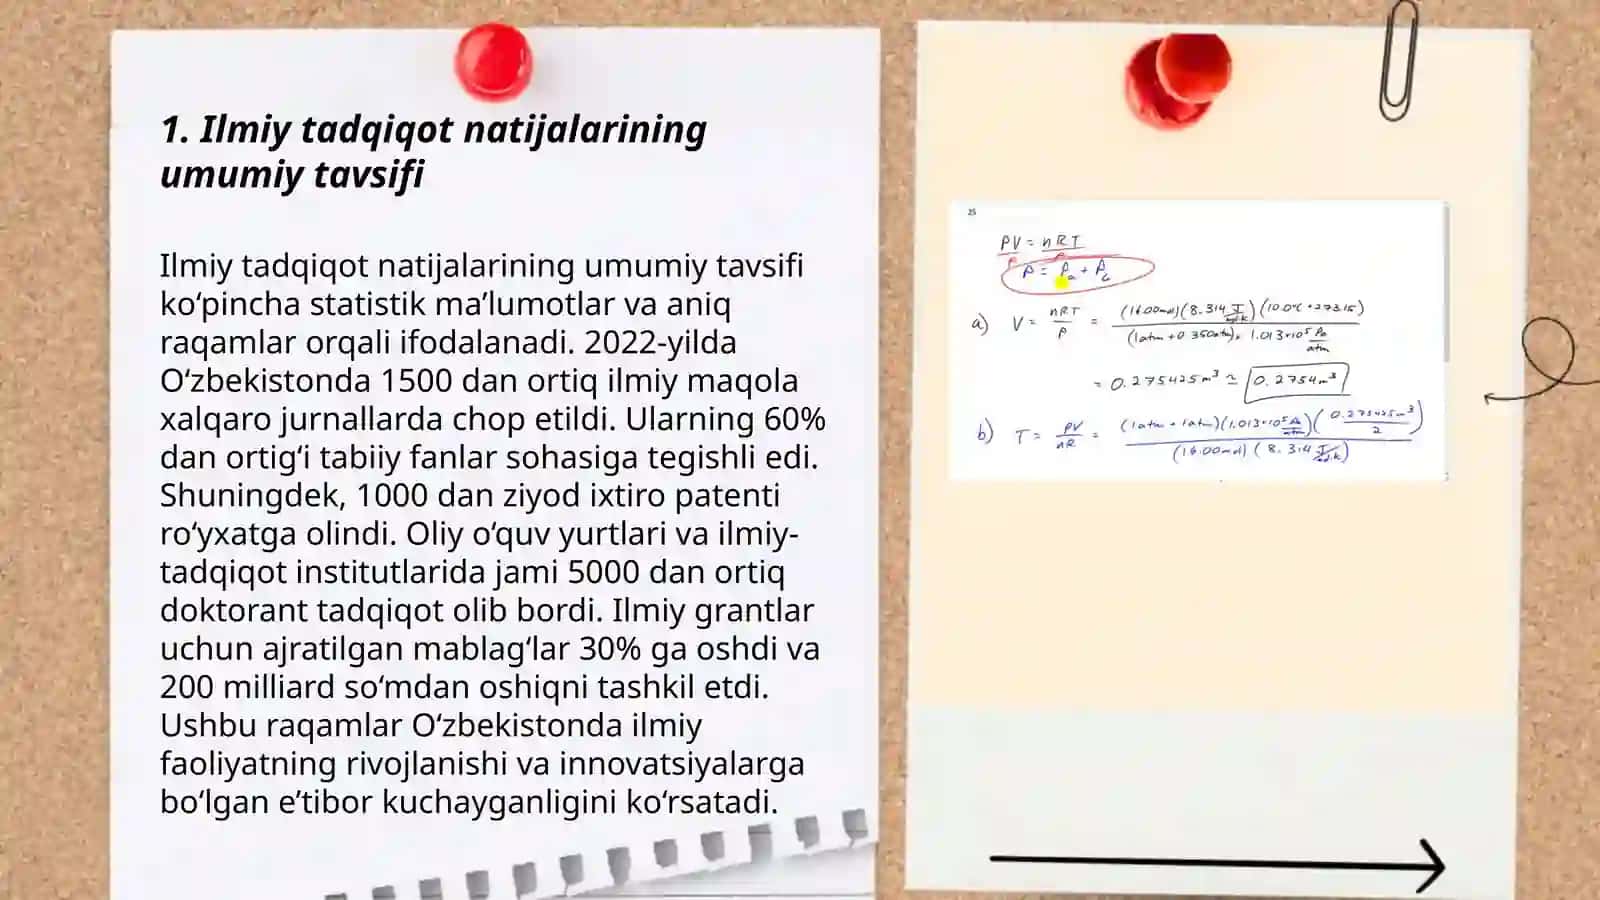 1. Ilmiy tadqiqot natijalarining
umumiy tavsifi
Ilmiy tadqiqot natijalarining umumiy tavsifi
ko‘pincha statistik ma’lumotlar va aniq
raqamlar orqali ifodalanadi. 2022-yilda
O‘zbekistonda 1500 dan ortiq ilmiy maqola
xalqaro jurnallarda chop etildi. Ularning 60%
dan ortig‘i tabiiy fanlar sohasiga tegishli edi.
Shuningdek, 1000 dan ziyod ixtiro patenti
ro‘yxatga olindi. Oliy o‘quv yurtlari va ilmiy-
tadqiqot institutlarida jami 5000 dan ortiq
doktorant tadqiqot olib bordi. Ilmiy grantlar
uchun ajratilgan mablag‘lar 30% ga oshdi va
200 milliard so‘mdan oshiqni tashkil etdi.
Ushbu raqamlar O‘zbekistonda ilmiy
faoliyatning rivojlanishi va innovatsiyalarga
bo‘lgan e’tibor kuchayganligini ko‘rsatadi.
25
PV = nRT
P = Pa + PG
a) V = nRT / P = (16.00mol)(8.314 J/mol·K)(10.0°C + 273.15) / (1atm + 0.350atm) × 1.013×10⁵ Pa/atm
= 0.275425m³ ≃ 0.2754m³
b) T = PV / nR = (1atm + 1atm)(1.013×10⁵ Pa/atm)(0.275425m³ / 2) / (16.00mol)(8.314 J/mol·K)